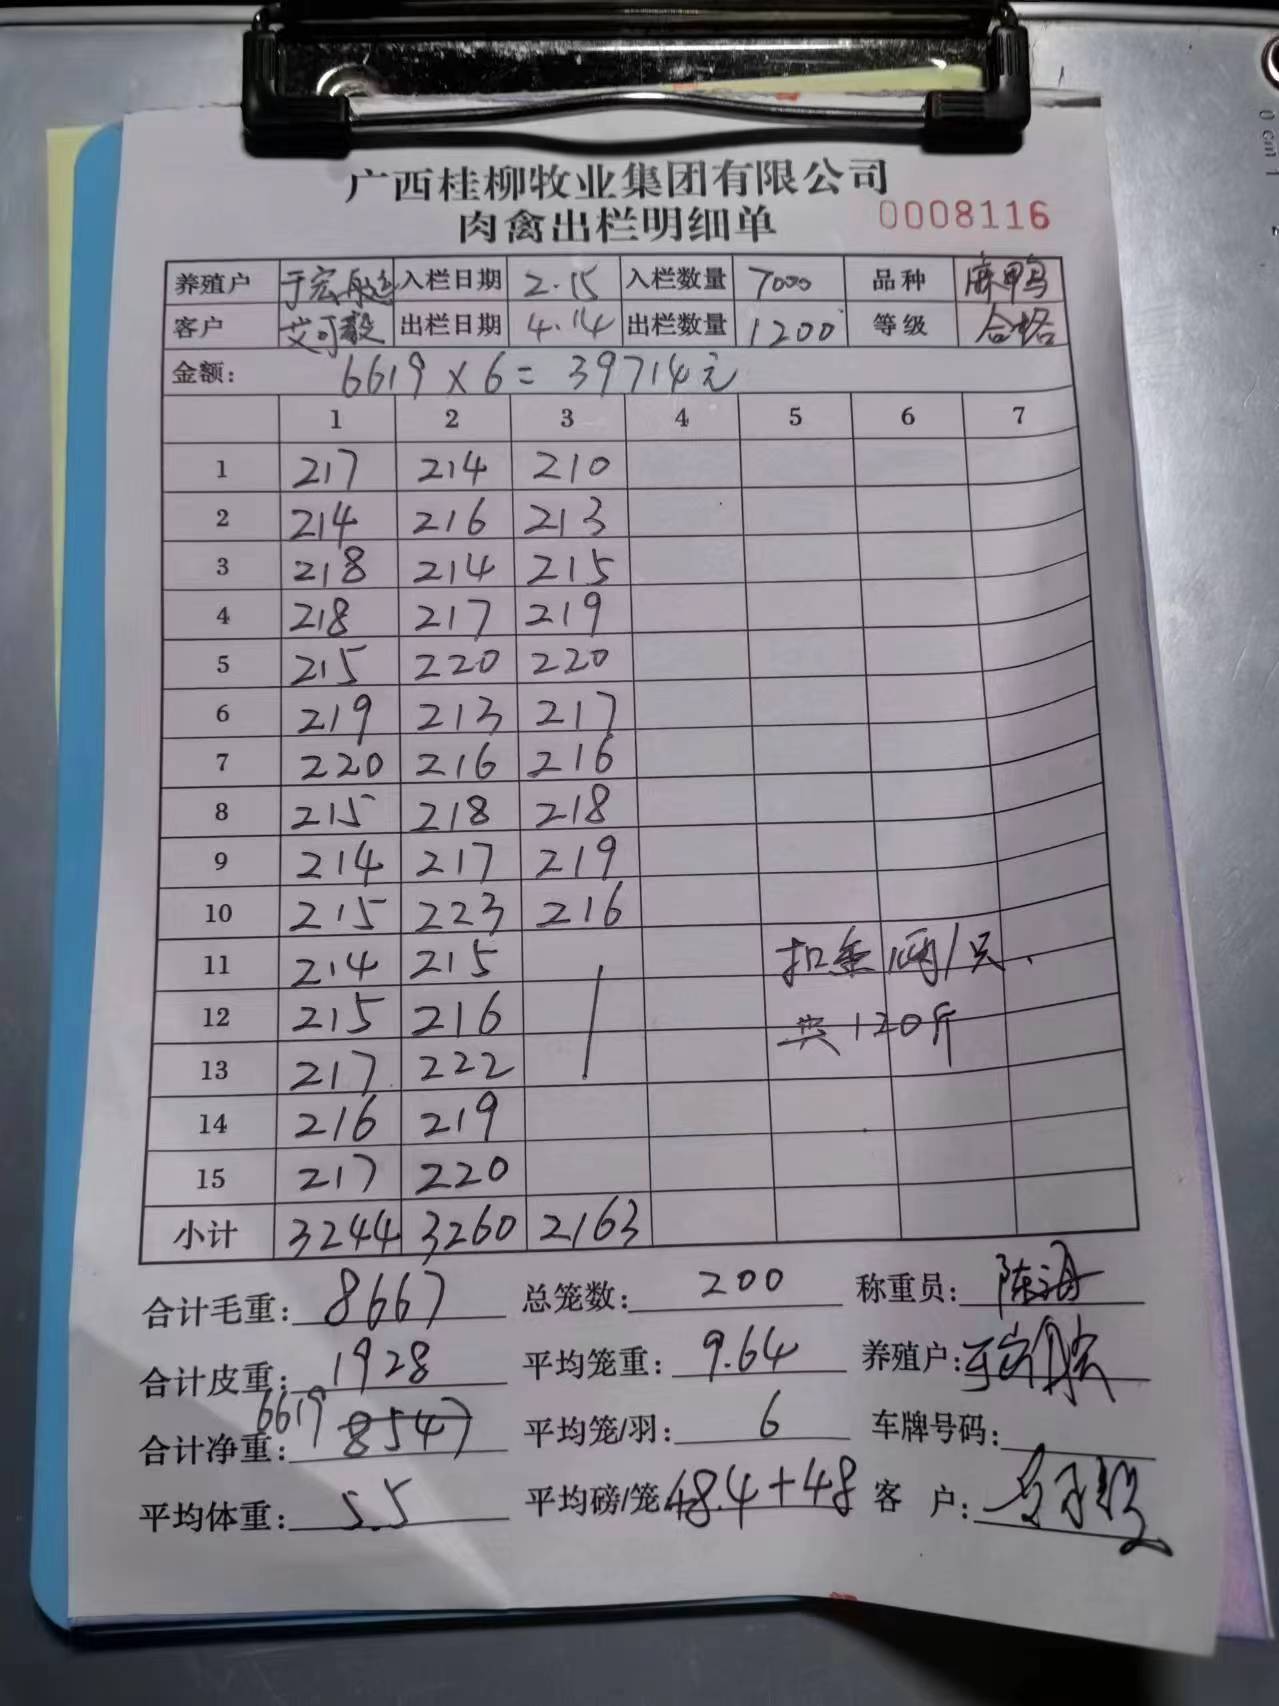 广西桂柳牧业集团有限公司
肉禽出栏明细单 0008116
养殖户 于宏 入栏日期 2.15 入栏数量 7000 品种 麻鸭
客户 艾可毅 出栏日期 4.14 出栏数量 1200 等级 合格
金额: 6619×6=39714元
1 2 3 4 5 6 7
1 217 214 210
2 214 216 213
3 218 214 215
4 218 217 219
5 215 220 220
6 219 213 217
7 220 216 216
8 215 218 218
9 214 217 219
10 215 223 216
11 214 215 扣重1两/只.
12 215 216 共120斤
13 217 222
14 216 219
15 217 220
小计 3244 3260 2163
合计毛重: 8667 总笼数: 200 称重员: 陈海
合计皮重: 1928 平均笼重: 9.64 养殖户:
合计净重: 6619 8547 平均笼/羽: 6 车牌号码:
平均体重: 5.5 平均磅/笼 48.4+48 客户:
0 cm 1 2